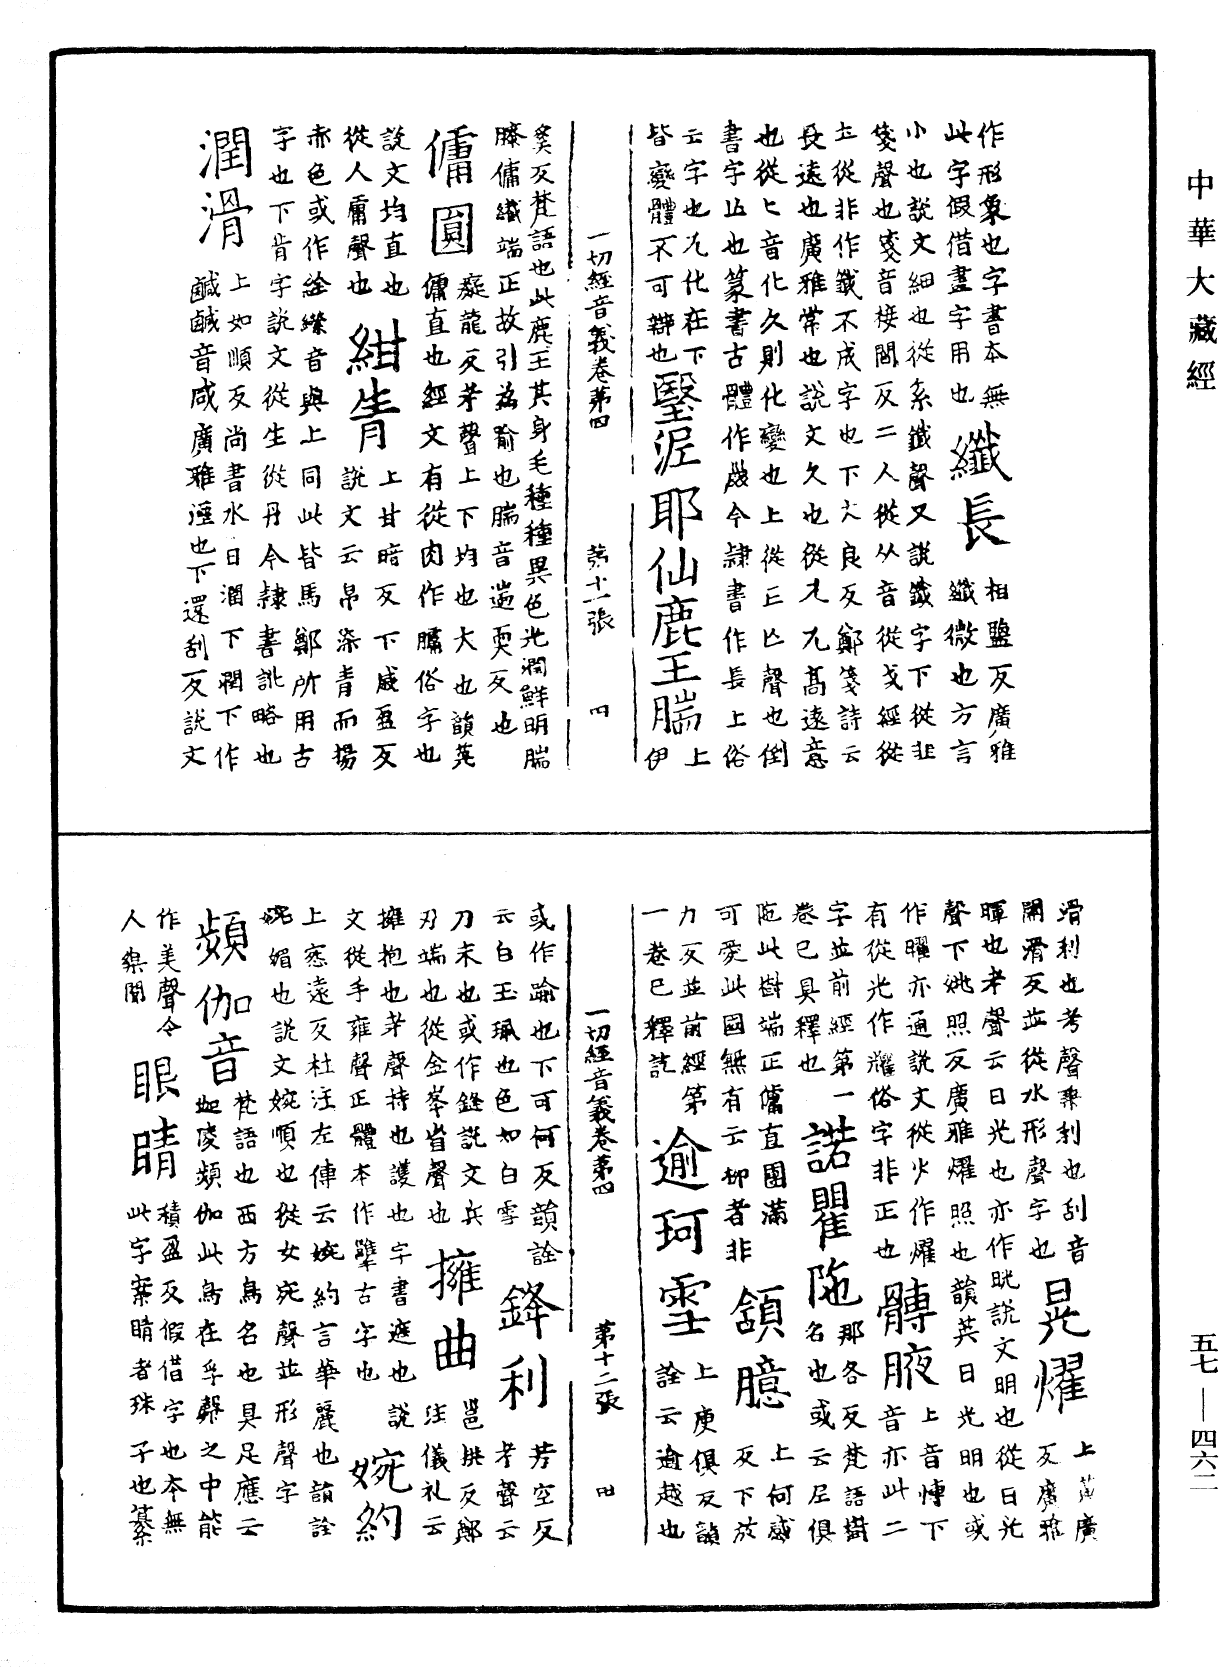 中華大藏經
作形象也字書本無
此字假借盡字用也
纖長
相鹽反廣雅
纖微也方言
小也說文細也從糸韱聲又說韱字下從韭
戔聲也戔音接閻反二人從从音從戈經從
韭從非作韱不成字也下丈良反鄭箋詩云
長遠也廣雅常也說文久也從兀兀高遠意
也從匕音化久則化變也上從亡亡聲也倒
書字亾也篆書古體作镸今隸書作長上俗
云字也兀化在下
皆變體不可辯也
瑿泥耶仙鹿王腨
上
伊
一切經音義卷第四 第十一張 四
奚反梵語也此鹿王其身毛種種異色光潤鮮明腨
膝傭纖端正故引為喻也腨音遄耎反也
傭圓
癡龍反考聲上下均也大也韻英
傭直也經文有從肉作𦟛俗字也
說文均直也
從人庸聲也
紺青
上甘暗反下戚盈反
說文云帛染青而揚
赤色或作繠音與上同此皆馬鄭所用古
字也下青字說文從生從丹今隸書訛略也
潤滑
上如順反尚書水曰潤下潤下作
鹹鹹音咸廣雅溼也下還刮反說文
滑利也考聲渠利也刮音
關滑反並從水形聲字也
晃燿
上黃廣
反廣雅
暉也考聲云日光也亦作晄說文明也從日光
聲下姚照反廣雅燿照也韻英日光明也或
作曜亦通說文從火作燿
有從光作耀俗字非正也
髆腋
上音博下
音亦此二
字並前經第一
卷已具釋也
諾瞿陁
那各反梵語樹
名也或云尼俱
陁此樹端正傭直團滿
可愛此國無有云柳者非
頷臆
上何感
反下於
力反並前經第
一卷已釋訖
逾珂雪
上庾俱反韻
詮云逾越也
一切經音義卷第四 第十二張 甘
或作踰也下可何反韻詮
云白玉珮也色如白雪
鋒利
芳空反
考聲云
刀末也或作鏠說文兵
刃端也從金夆省聲也
擁曲
邕拱反鄭
注儀礼云
擁抱也考聲持也護也字書遮也說
文從手雍聲正體本作㩴古字也
婉約
上惌遠反杜注左傳云婉約言華麗也韻詮
婉媚也說文婉順也從女宛聲並形聲字
頻伽音
梵語也西方鳥名也具足應云
迦陵頻伽此鳥在孚㲉之中能
作美聲令
人樂聞
眼睛
積盈反假借字也本無
此字案睛者珠子也纂
五七—四六二